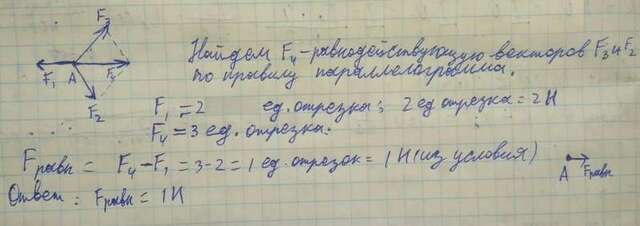 F₃
F₁ A F₄
F₂
Найдем F₄ - равнодействующую векторов F₃ и F₂
по правилу параллелограмма.
F₁ = 2 ед. отрезка; 2 ед отрезка = 2 Н
F₄ = 3 ед. отрезка.
Fравн = F₄ - F₁ = 3 - 2 = 1 ед. отрезок = 1 Н (из условия)
A Fравн
Ответ: Fравн = 1 Н